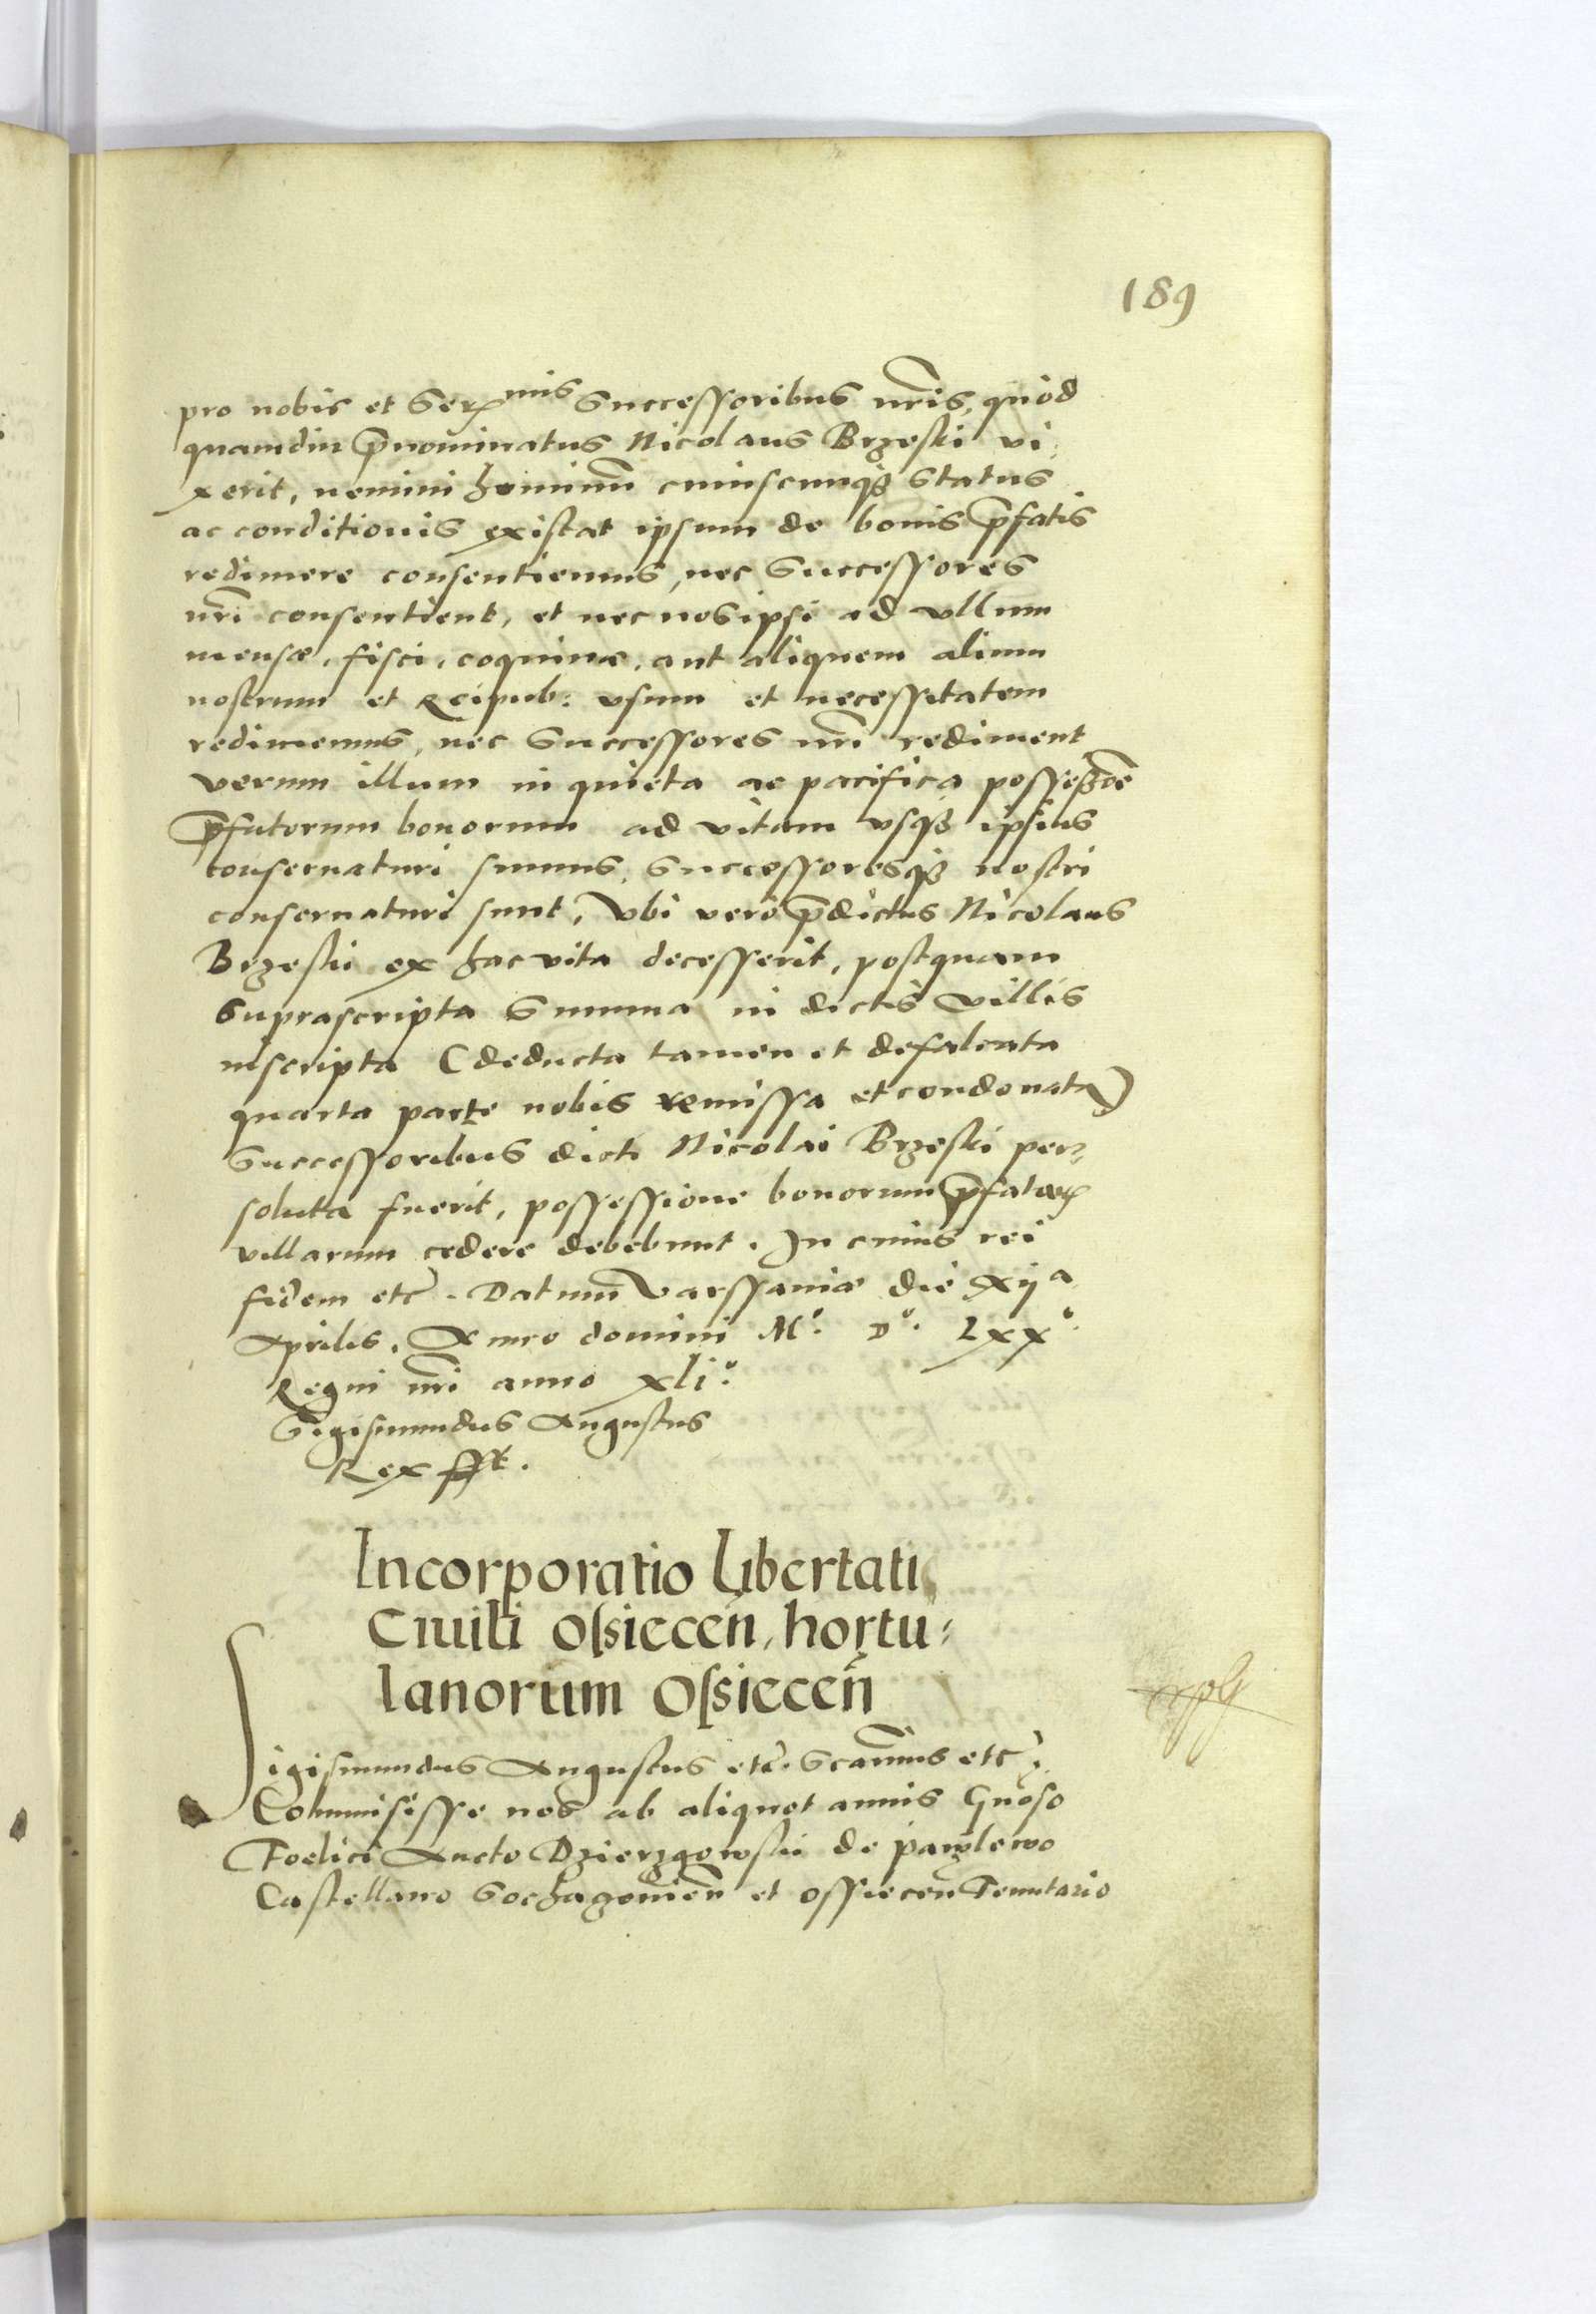 189
pro nobis et Ser^mis Successoribus nr̃is, quòd
quamdiu p̃nominatus Nicolaus Brzeski vi-
xerit, nemini hominũ cuiuscunq3 status
ac conditionis existat ipsum de bonis p̃fatis
redimere consentiemus, nec Successores
nr̃i consentient, et nec nos ipsi ad vllum
mensæ, fisci, coquinæ, aut aliquem alium
nostrum et Reipub: vsum et necessitatem
redimemus, nec Successores nr̃i rediment
verum illum in quieta ac pacifica possessiõe
p̃fatorum bonorum ad vitam vsq3 ipsius
conseruaturi sumus, Successoresq3 nostri
conseruaturi sunt, Vbi vero p̃dictus Nicolaus
Brzeski ex hac vita decesserit, postquam
suprascripta Summa in dictis Villis
inscripta (deducta tamen et defalcata
quarta parte nobis remissa et condonata)
Successoribus dicti Nicolai Brzeski per-
soluta fuerit, possessione bonorum p̃fatarꝝ
villarum cedere debebunt. In cuius rei
fidem etc̃. Datum Varssauiæ die xij^a
Aprilis. Anno domini M°. D°. Lxx°.
Regni nr̃i anno xli°.
Sigismundus Augustus
Rex sst.
Incorporatio Libertati
Ciuili Ossieceñ, hortu-
lanorum Ossieceñ
Sigismundus Augustus etc̃. Scam̃us etc̃.
Commisisse nos ab aliquot annis Gnoso
Foelici Aucto Dzierzgowski de pawlowo
Castellano Sochaczouieñ et Ossieceñ Tenutario